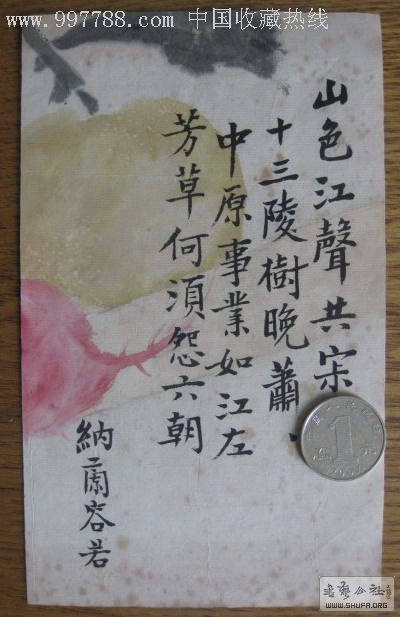 www.997788.com 中国收藏热线
山色江聲共
十三陵樹晚蕭、
中原事業如江左
芳草何須怨六朝
納蘭容若
1
书艺公社
WWW.SHUFA.ORG